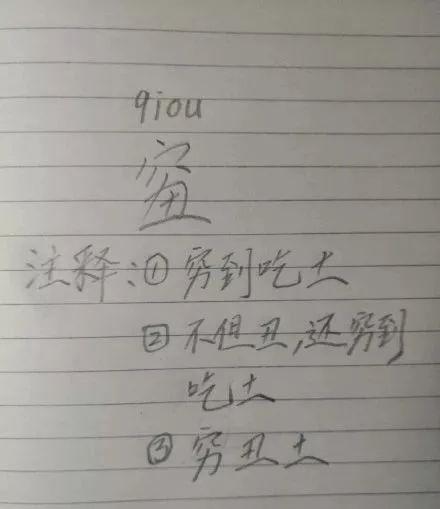 qiou
注释:① 穷到吃土
② 不但丑,还穷到
吃土
③ 穷丑土